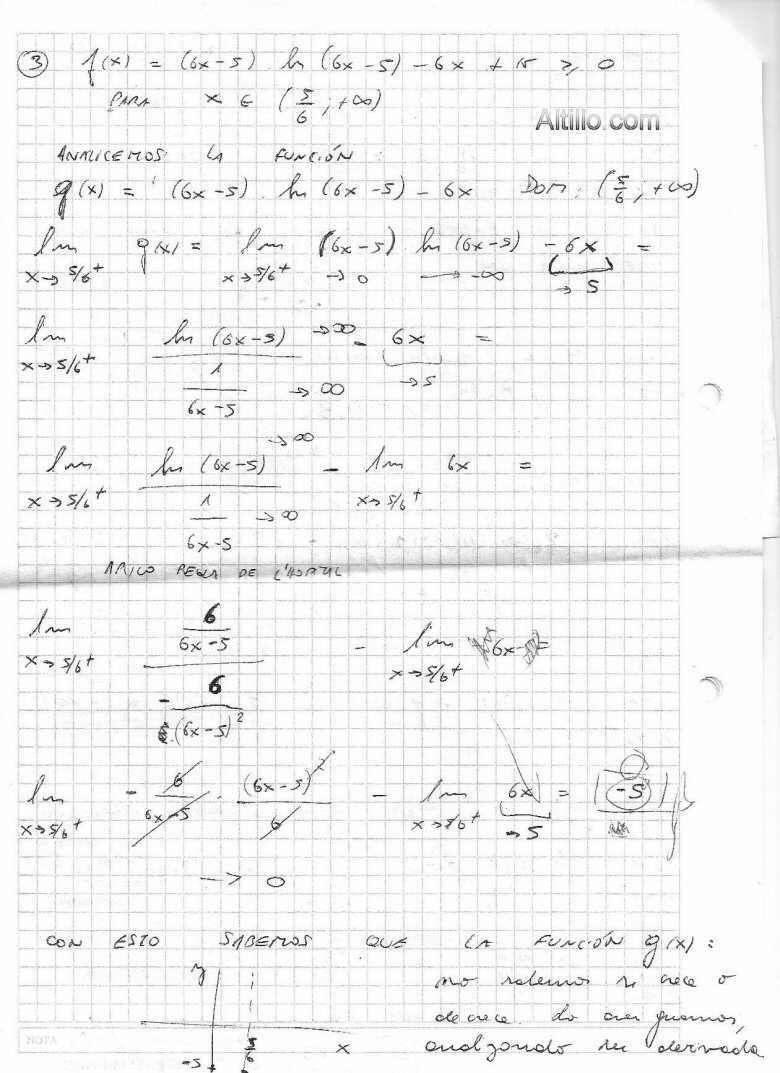 ③ f(x) = (6x-5) . ln (6x-5) - 6x + K ≥ 0
PARA x ∈ (5/6 ; +∞)
Altillo.com
ANALICEMOS LA FUNCIÓN:
g(x) = (6x-5) . ln (6x-5) - 6x DOM: (5/6 ; +∞)
lim x→5/6⁺ g(x) = lim x→5/6⁺ (6x-5) →0 ln (6x-5) →-∞ - 6x →5 =
lim x→5/6⁺ ln (6x-5) →∞ / (1/(6x-5)) →∞ - 6x →5 =
lim x→5/6⁺ ln (6x-5) →∞ / (1/(6x-5)) →∞ - lim x→5/6⁺ 6x =
APLICO REGLA DE L'HOPITAL
lim x→5/6⁺ (6/(6x-5)) / (-6/(6x-5)²) - lim x→5/6⁺ 6x =
lim x→5/6⁺ - 6/(6x-5) . (6x-5)²/6 - lim x→5/6⁺ 6x →5 = -5
→ 0
CON ESTO SABEMOS QUE LA FUNCIÓN g(x):
y
no sabemos si crece o
decrece. Lo averiguamos,
x analizando su derivada
-5
NOTA